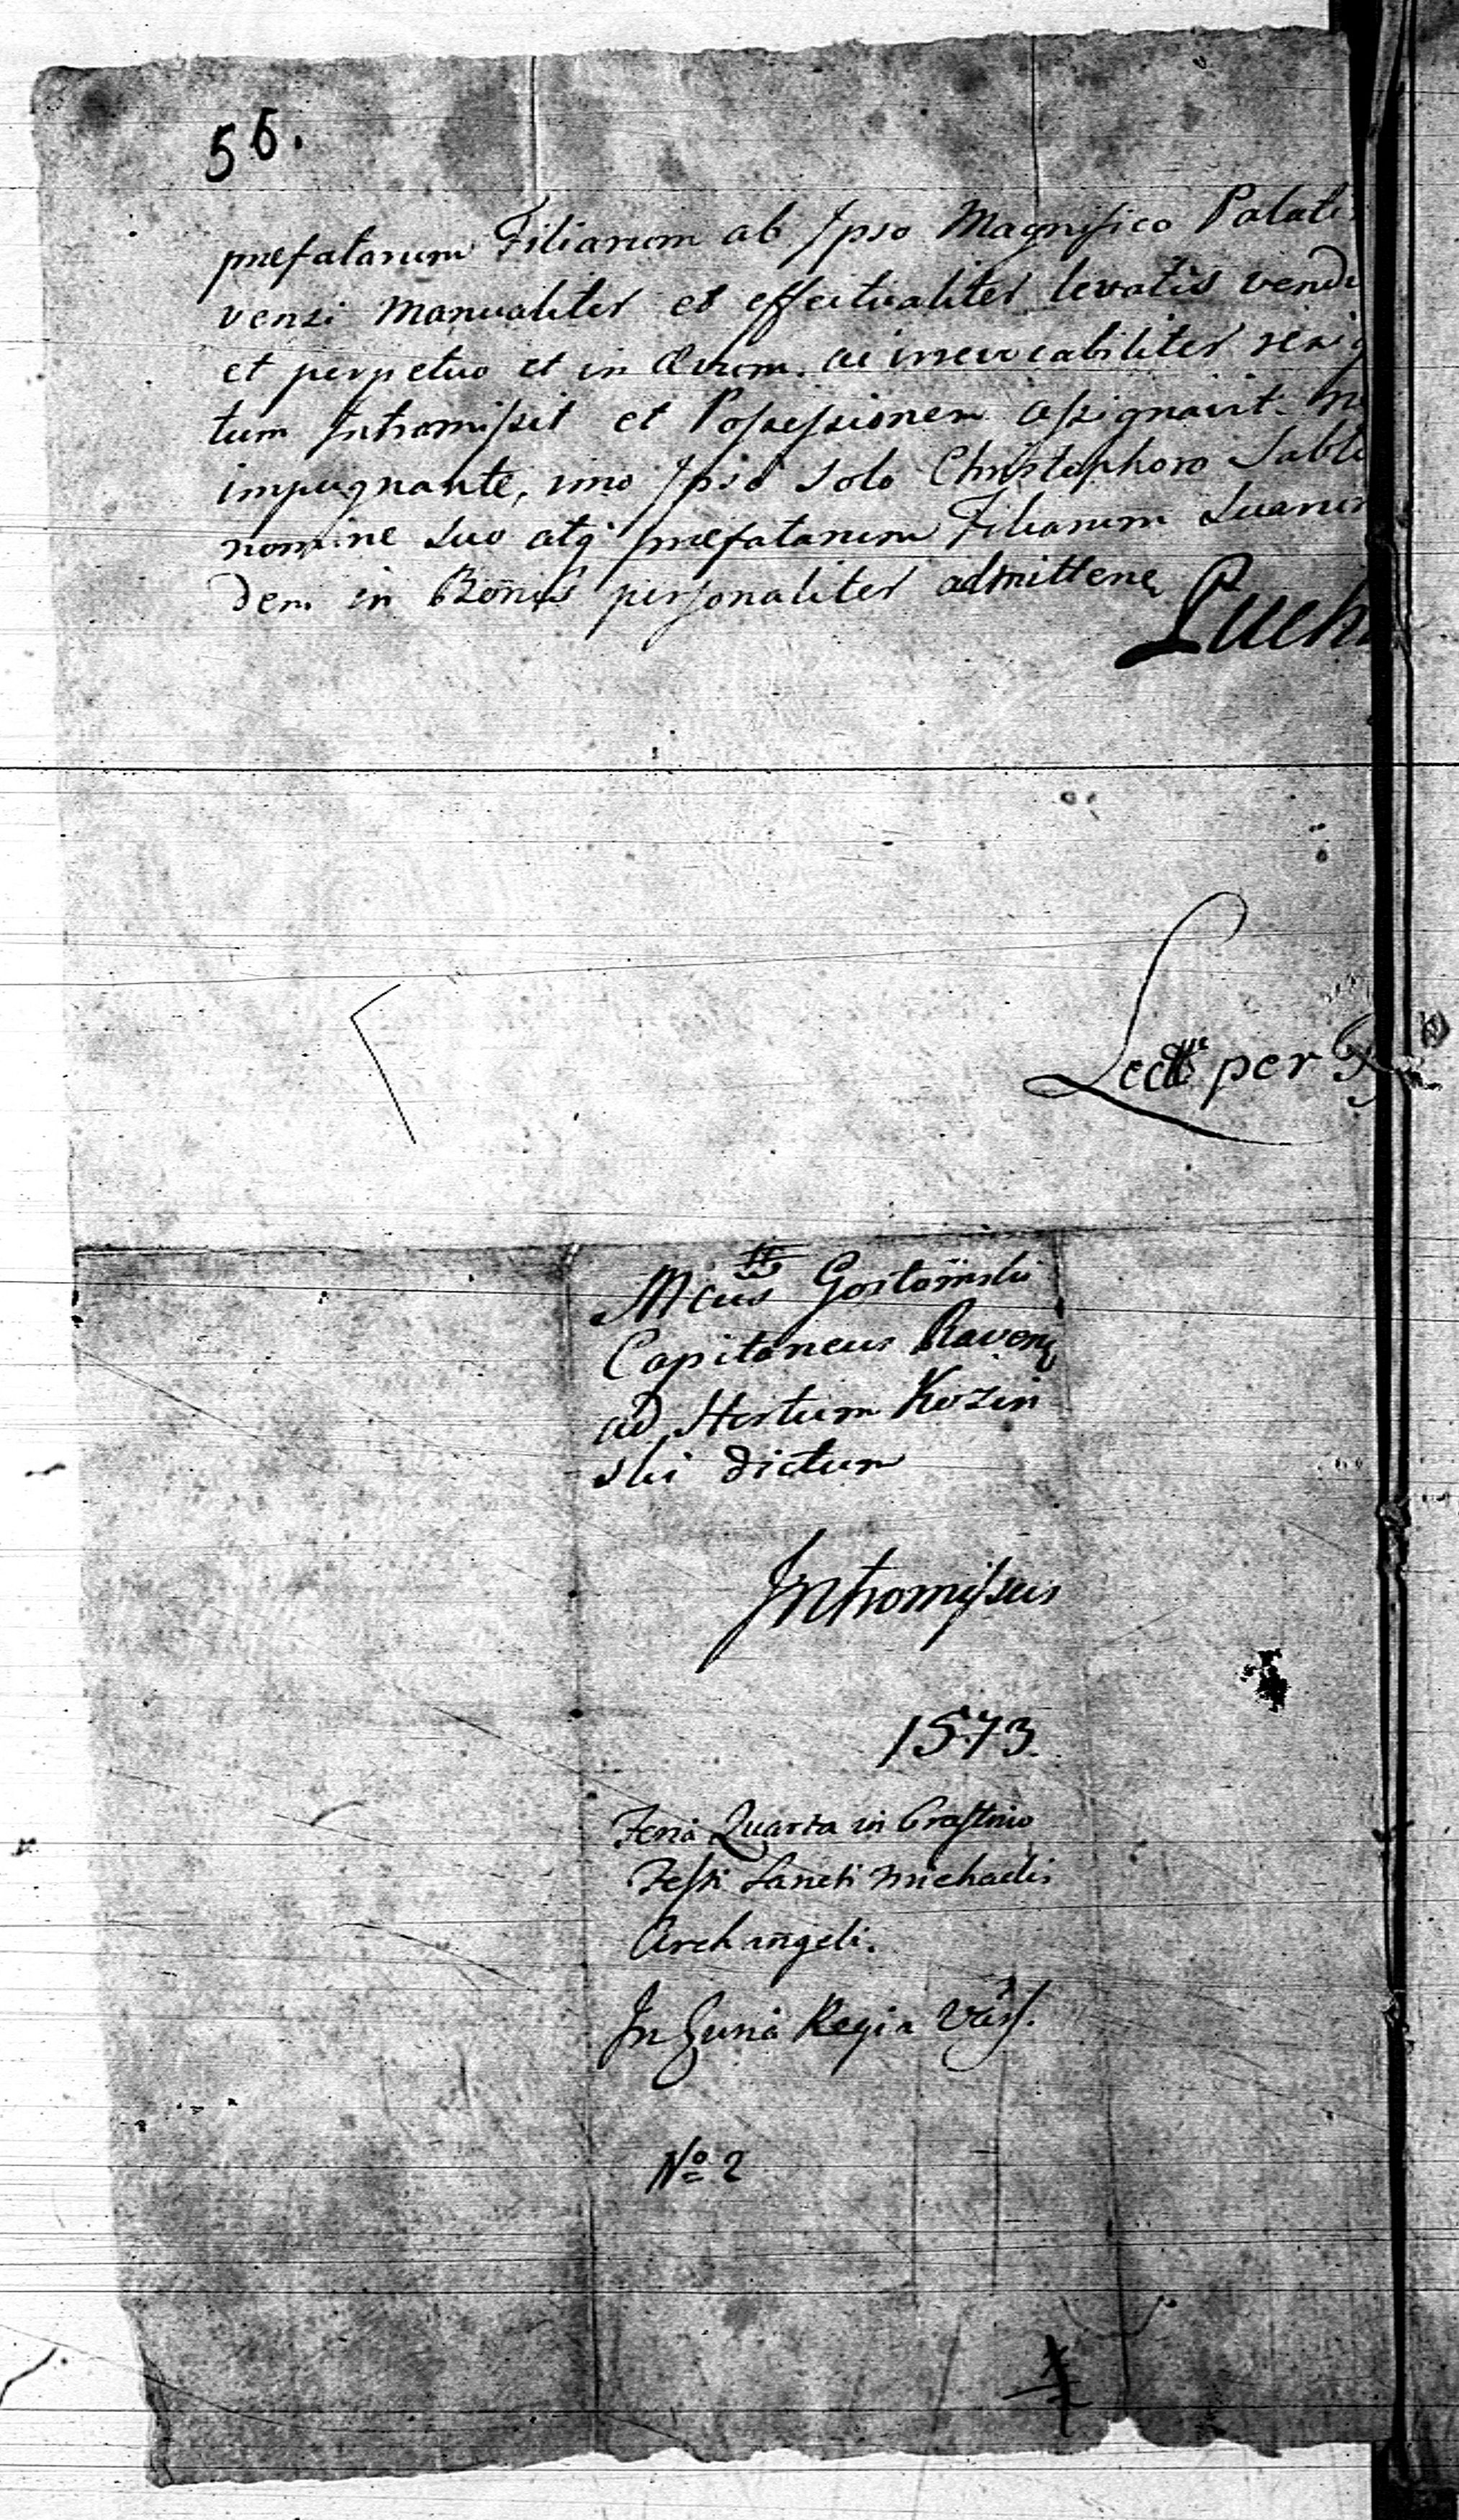 56.
præfatarum Filiarum ab Ipso Magnifico Palati
vensi Manualiter et effectualiter levatis vendi
et perpetuo et in Ævum. ac irrevocabiliter resig
tum Intromisit et Possessionem assignavit.
impugnante, imo Ipso Solo Christophoro Sable
nomine Suo atq præfatarum Filiarum Suarum
dem in Bonis personaliter admitten
Lect per
Mcus Gostomski
Capitaneus Raven
ad Hortum Kozin
ski dictum
Intromissus
1573.
Feria Quarta in Crastino
Festi Sancti Michaelis
Archangeli.
In Curia Regia Vars.
No 2